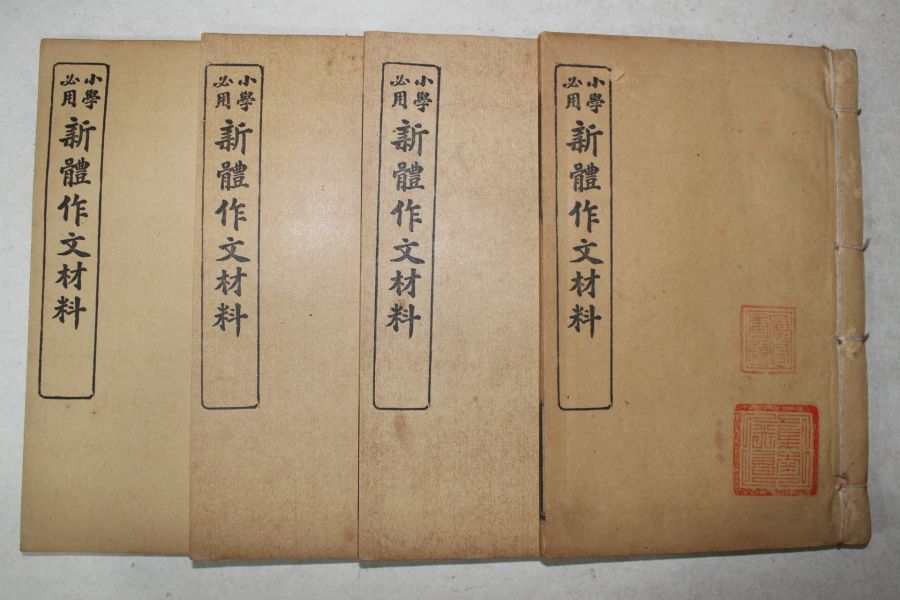 小學
必用
新體作文材料
小學
必用
新體作文材料
小學
必用
新體作文材料
小學
必用
新體作文材料